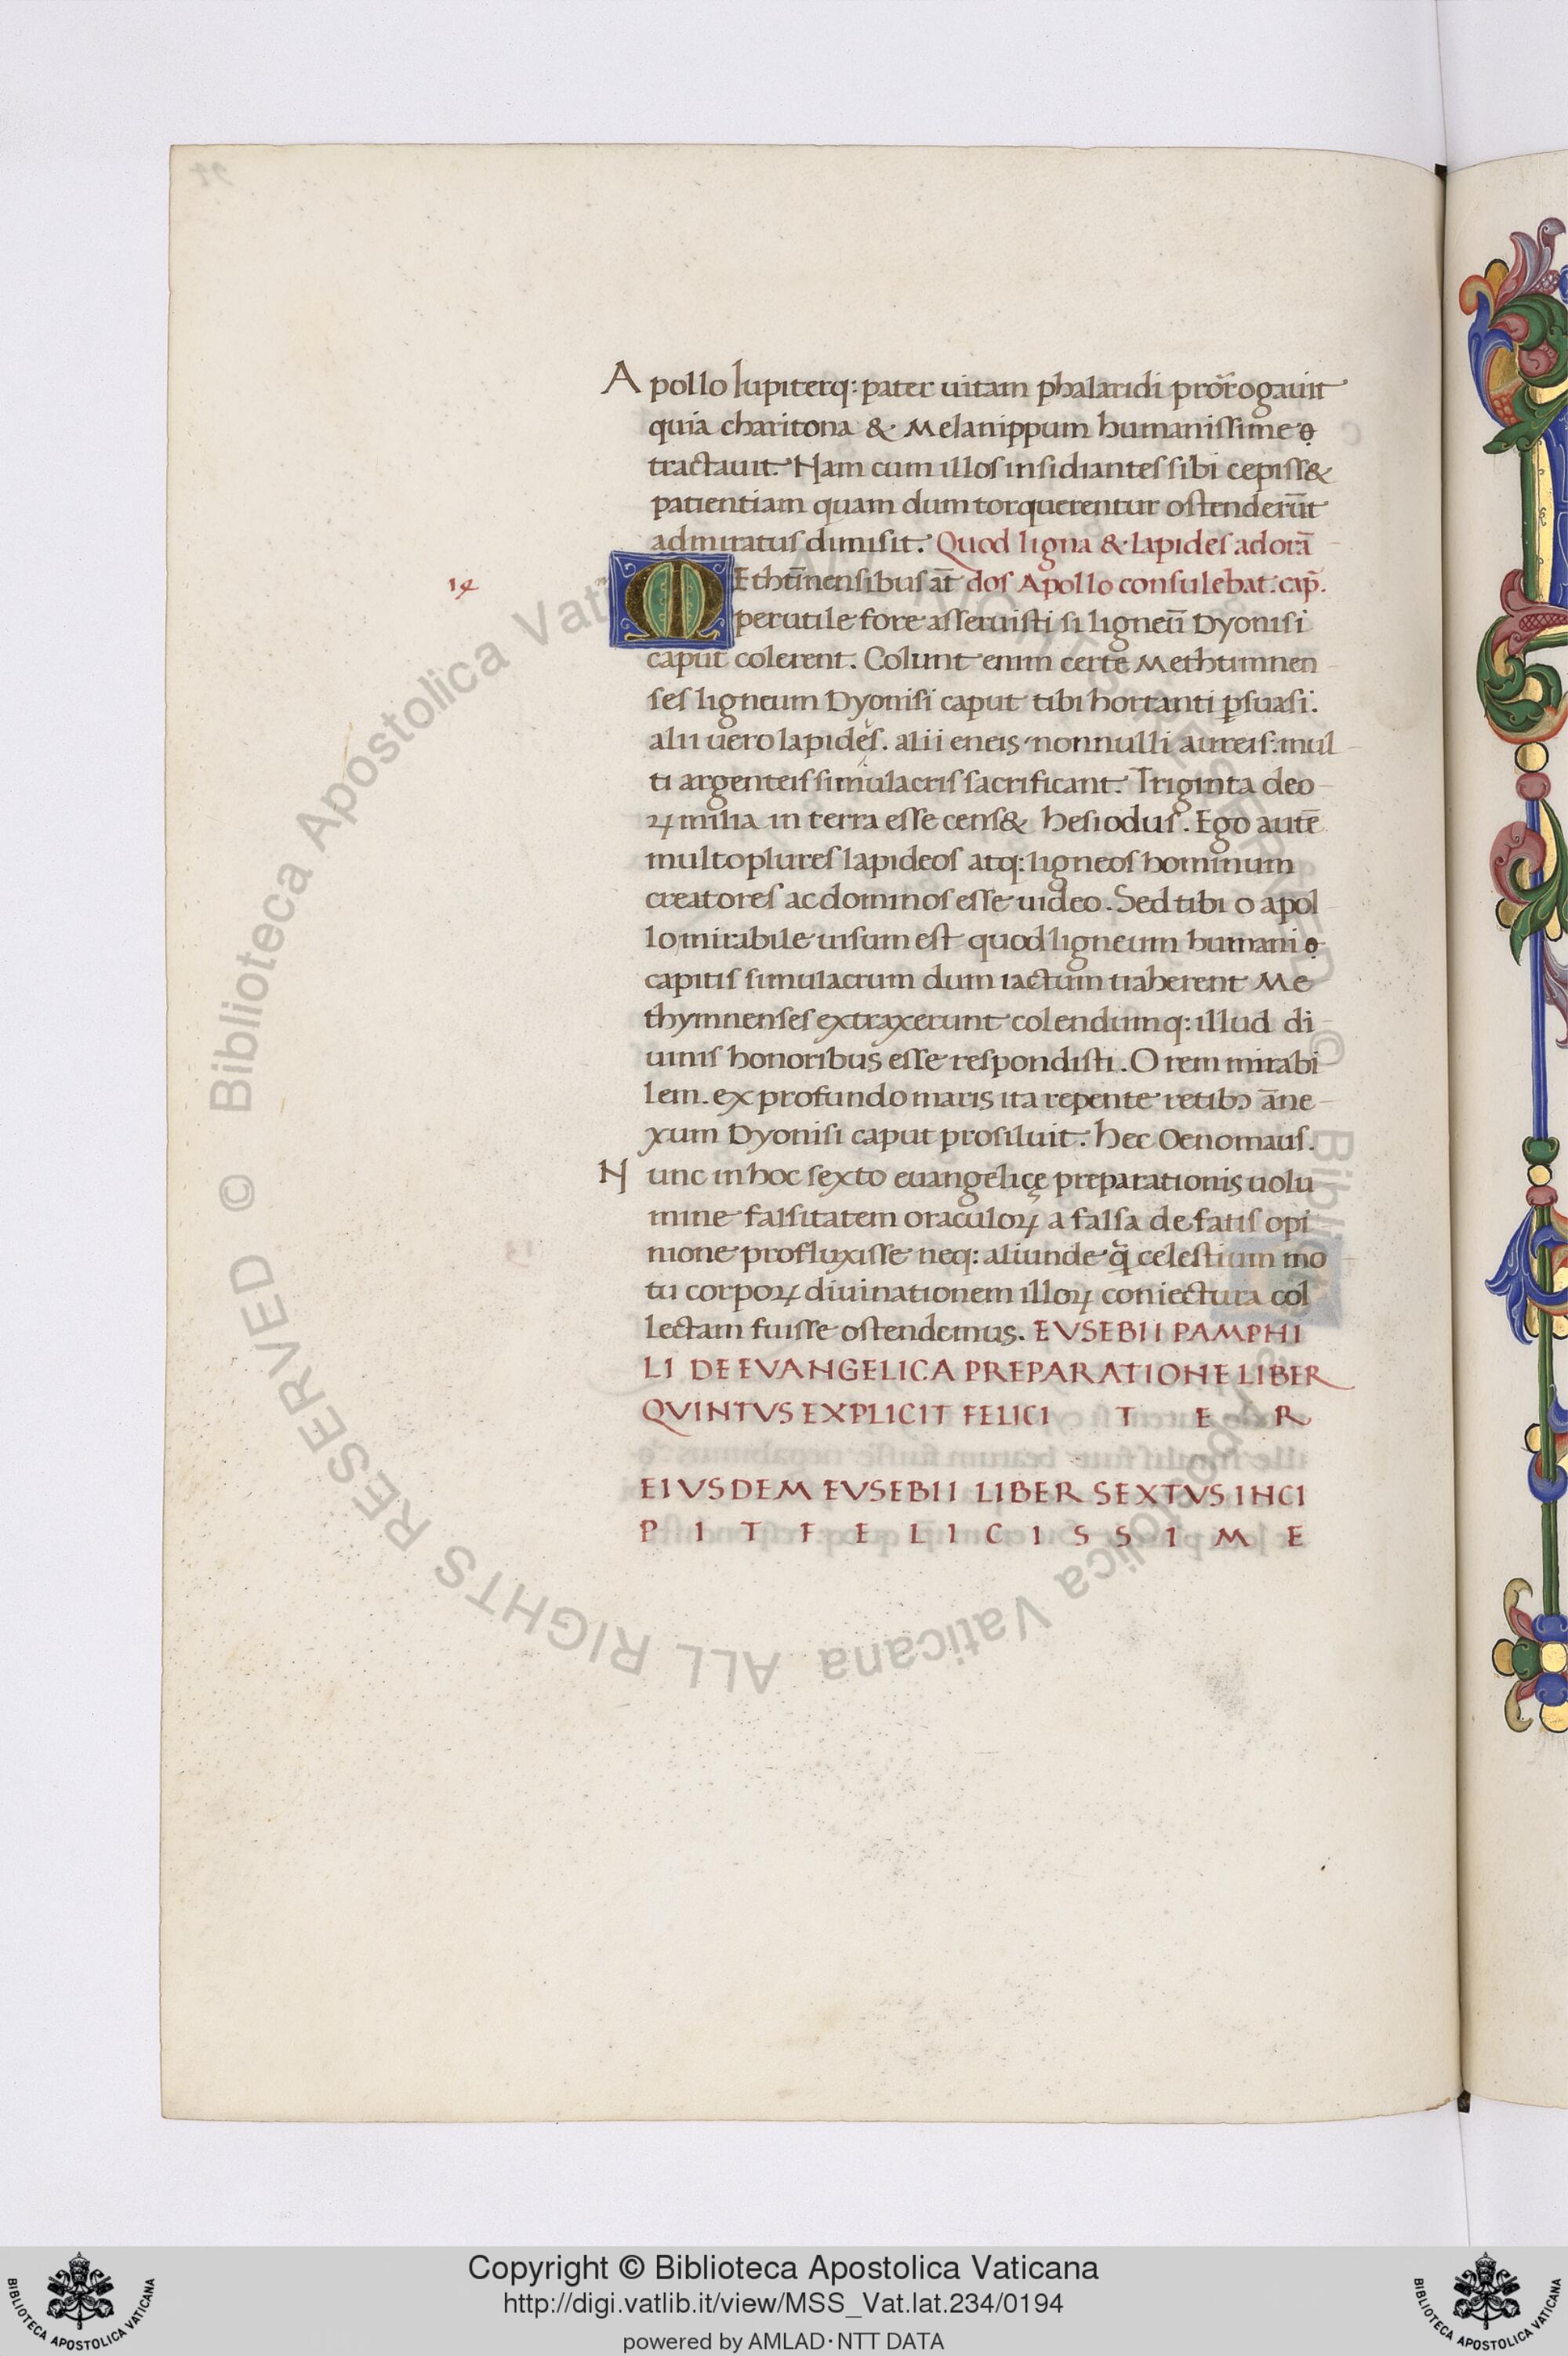 Apollo Iupiterq: pater uitam phalaridi prorogauit
quia charitona & Melanippum humanissime
tractauit. Nam cum illos insidiantes sibi cepiss&
patientiam quam dum torquerentur ostenderūt
admiratus dimisit. Quod ligna & lapides adorā
14
MEthīnensibus āt dos Apollo consulebat. cap̄.
perutile fore asseruisti si ligneū Dyonisi
caput colerent. Colunt enim certe Methimnen
ses ligneum Dyonisi caput tibi hortanti ꝑsuasi:
alii uero lapideis. alii eneis nonnulli aureis: mul
ti argenteis simulacris sacrificant. Triginta deo
ꝝ milia in terra esse cens& hesiodus. Ego autē
multo plures lapideos atq: ligneos hominum
creatores ac dominos esse uideo. Sed tibi o apol
lo mirabile uisum est quod ligneum humani
capitis simulacrum dum iactum traherent Me
thymnenses extraxerunt colendumq: illud di
uinis honoribus esse respondisti. O rem mirabi
lem. ex profundo maris ita repente retibꝫ āne
xum Dyonisi caput prosiluit. hec Oenomaus.
Nunc in hoc sexto euangelicę preparationis uolu
mine falsitatem oraculoꝝ a falsa de fatis opi
nione profluxisse neq: aliunde q̄ celestium mo
tu corpoꝝ diuinationem illoꝝ coniectura col
lectam fuisse ostendemus. EVSEBII PAMPHI
LI DE EVANGELICA PREPARATIONE LIBER
QVINTVS EXPLICIT FELICI T E R
EIVSDEM EVSEBII LIBER SEXTVS INCI
P I T F E L I C I S S I M E
© Biblioteca Apostolica Vaticana ALL RIGHTS RESERVED
Copyright © Biblioteca Apostolica Vaticana
http://digi.vatlib.it/view/MSS_Vat.lat.234/0194
powered by AMLAD·NTT DATA
BIBLIOTECA APOSTOLICA VATICANA
BIBLIOTECA APOSTOLICA VATICANA